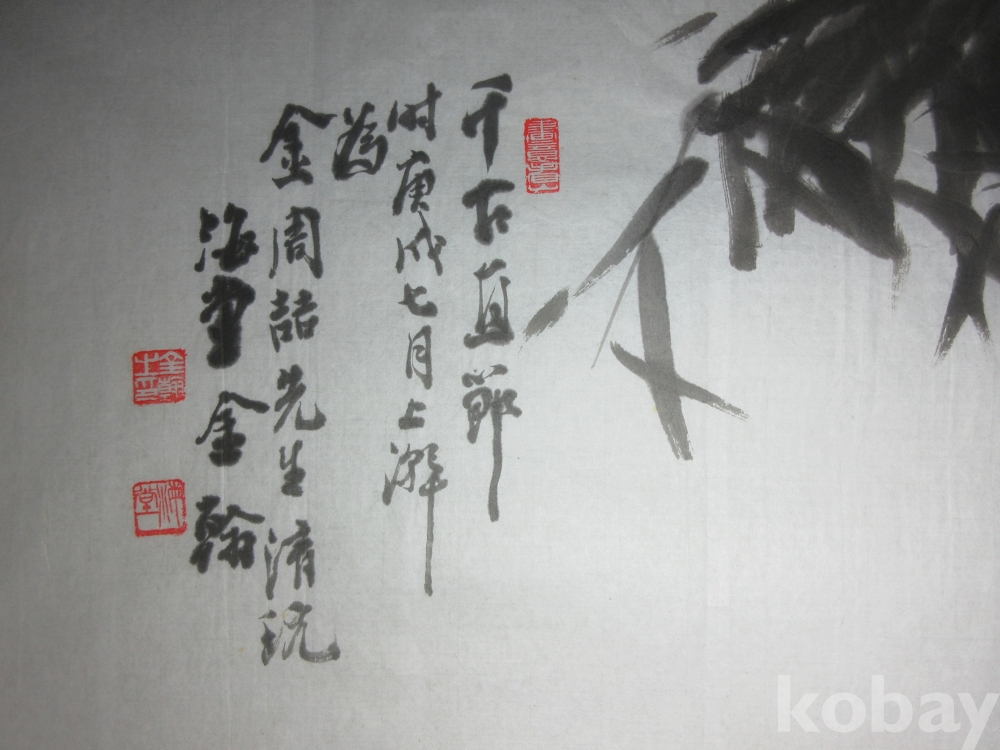 千古直節
时庚戌七月上澣
為
金周喆先生清玩
海堂金翰
海堂
kobay